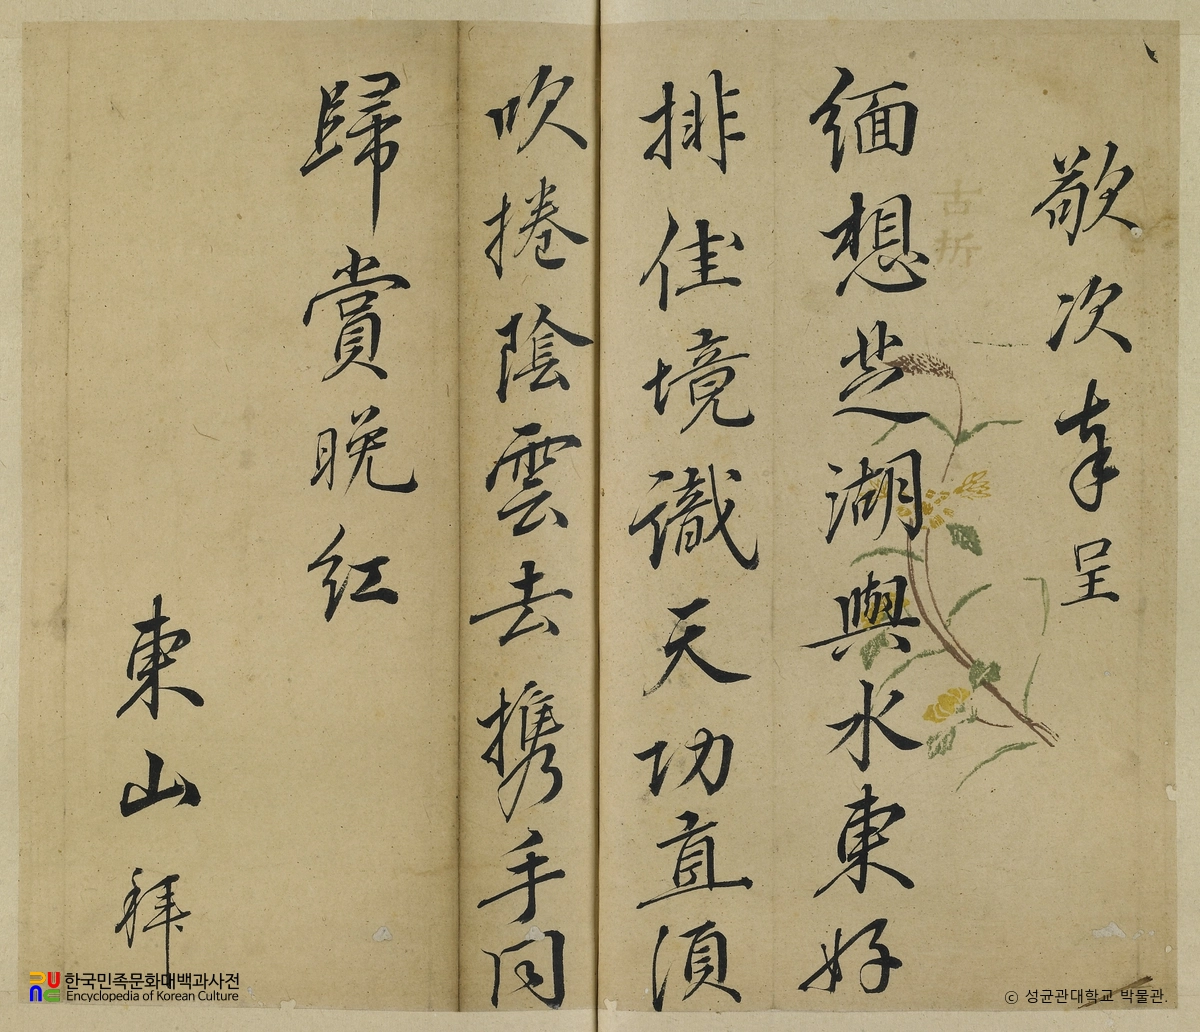 敬次奉呈
緬想芝湖輿水東好
排佳境識天功直須
吹捲陰雲去携手同
歸賞晩紅
東山拜
古折
한국민족문화대백과사전
Encyclopedia of Korean Culture
ⓒ 성균관대학교 박물관.